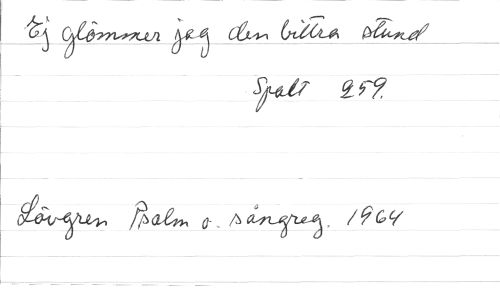 Ej glömmer jag den bittra stund
Spalt 259.
Lövgren Psalm o. sångreg. 1964